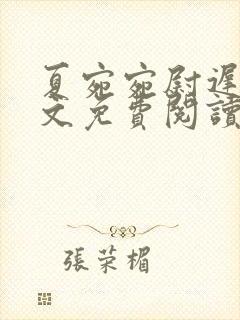 夏宛宛尉遲
文免費閱讀
張荣楣